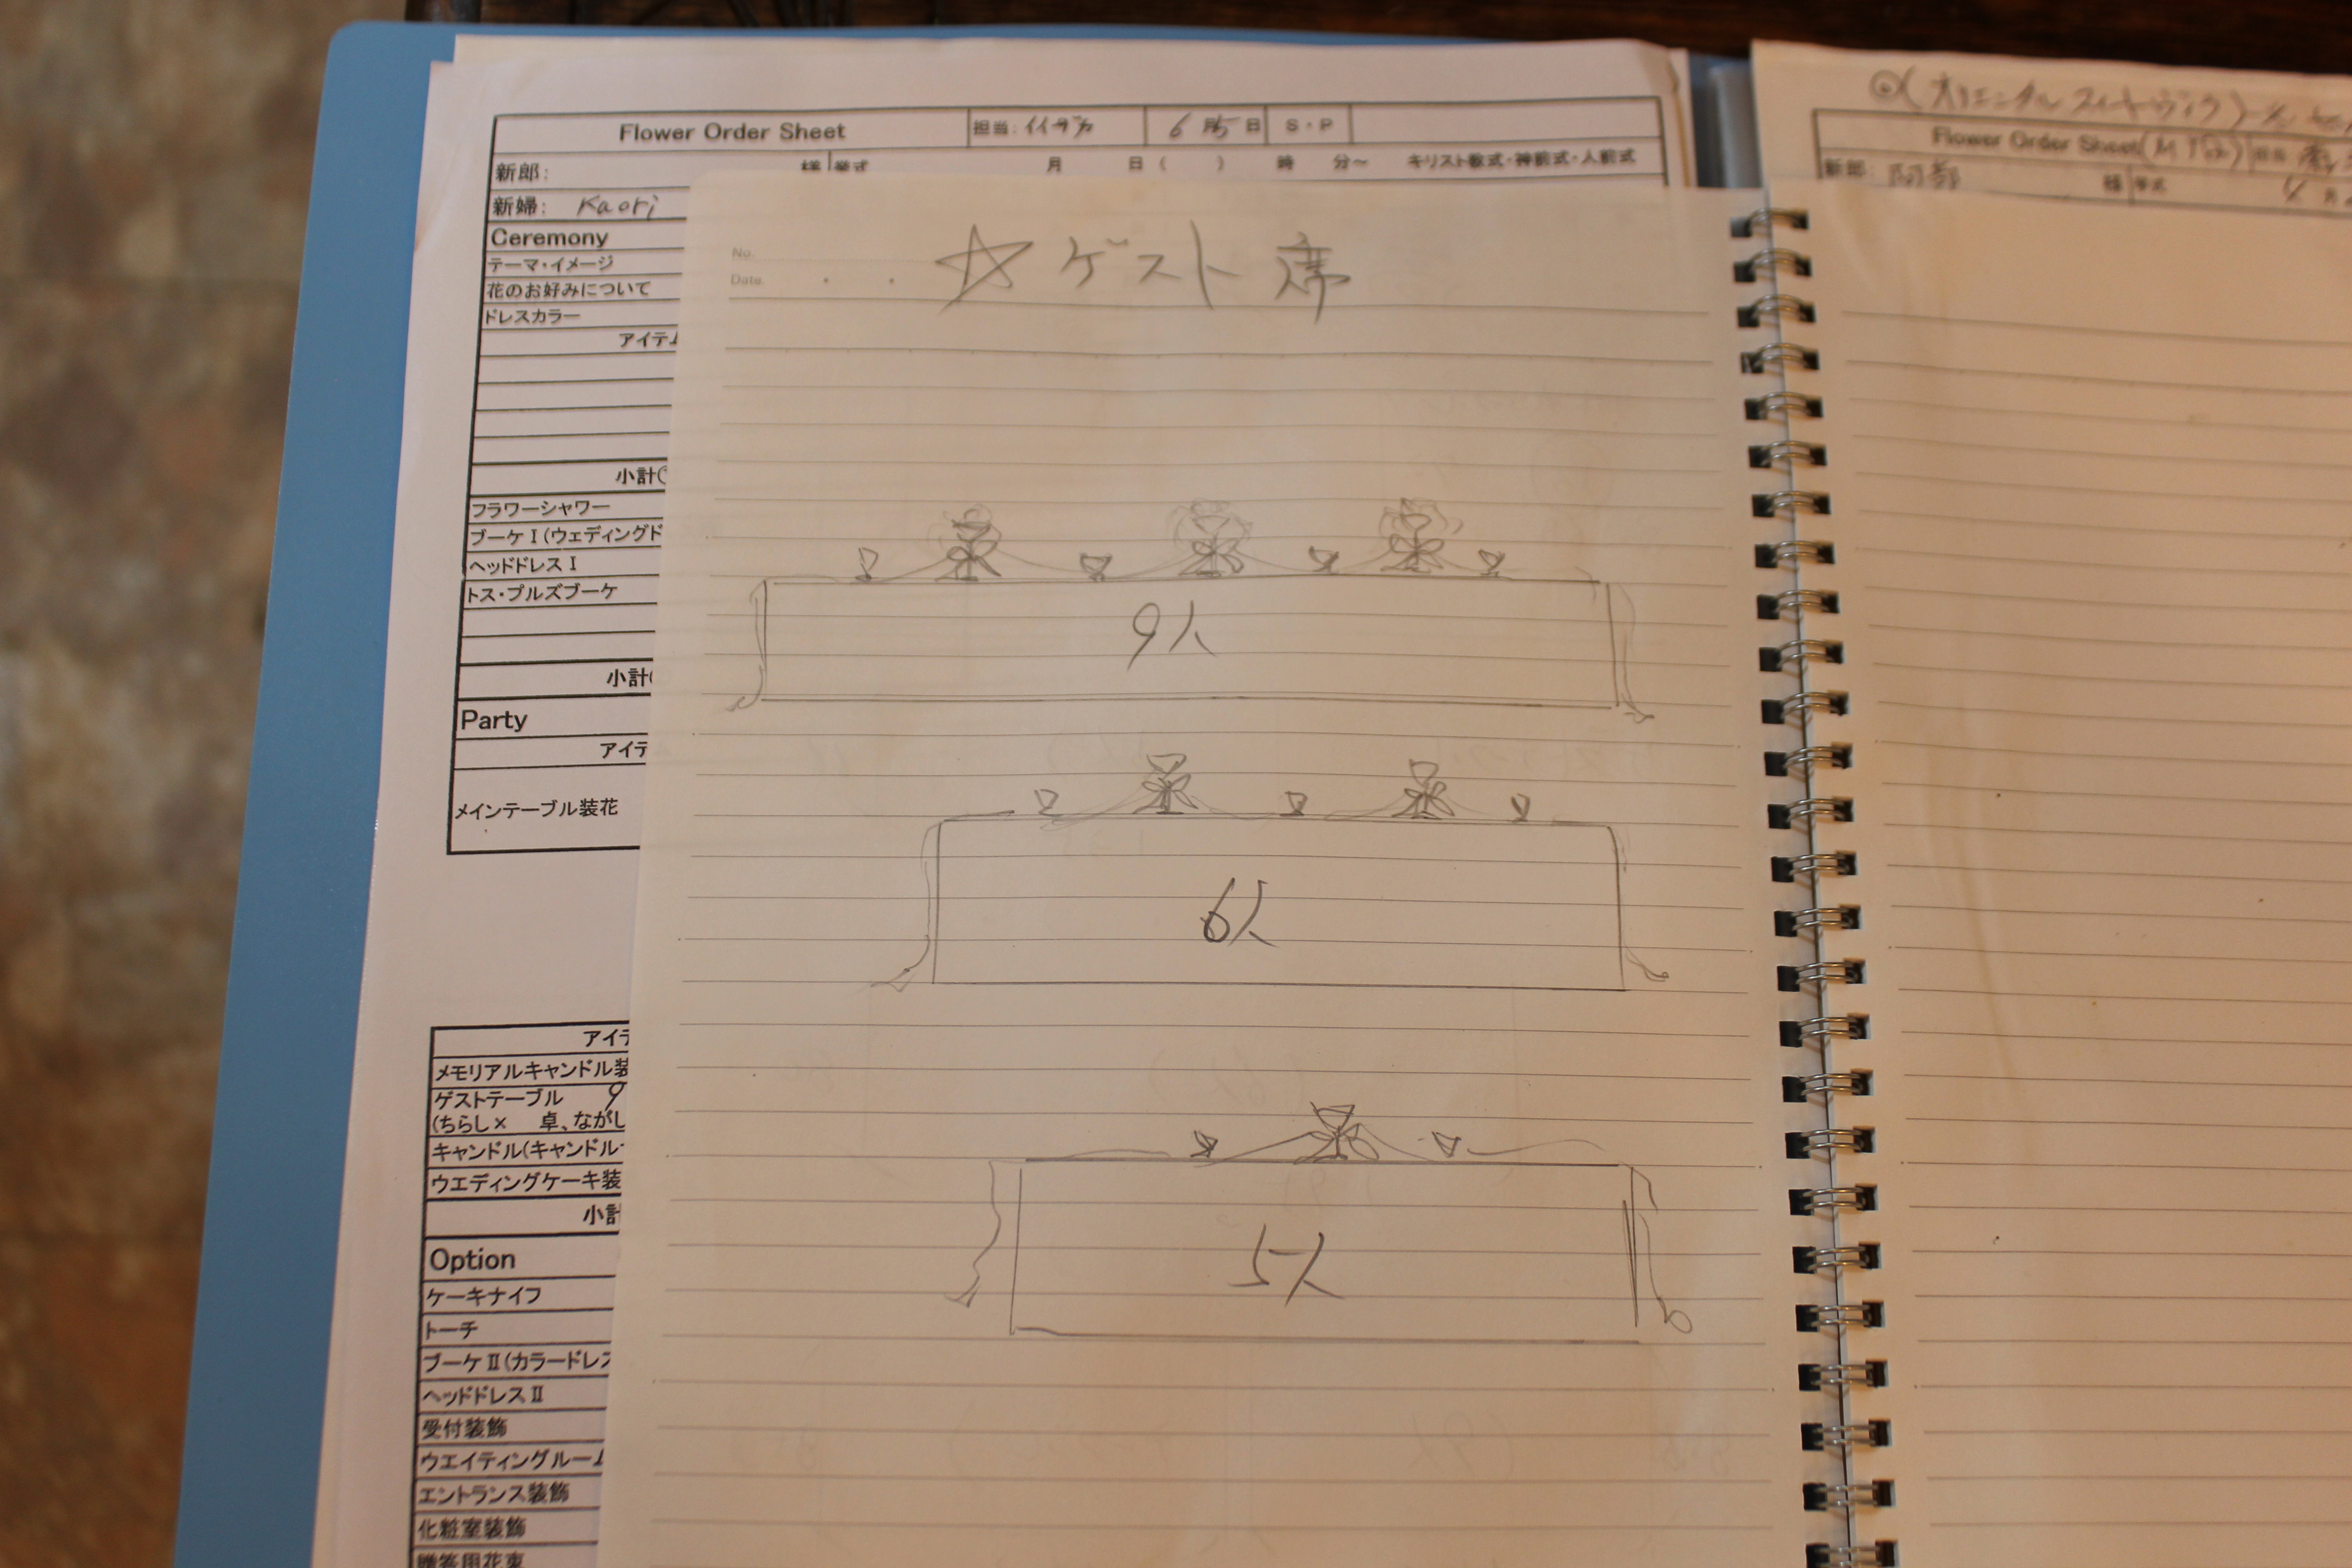 Flower Order Sheet 担当: 6月5日 S・P
新郎: 様 挙式 月 日( ) 時 分～ キリスト教式・神前式・人前式
新婦: Kaori
Ceremony
テーマ・イメージ
花のお好みについて
ドレスカラー
アイテム
小計
フラワーシャワー
ブーケⅠ(ウェディングド
ヘッドドレスⅠ
トス・プルズブーケ
小計
Party
アイテ
メインテーブル装花
アイテ
メモリアルキャンドル装
ゲストテーブル 9
(ちらし× 卓、ながし
キャンドル(キャンドル
ウエディングケーキ装
小計
Option
ケーキナイフ
トーチ
ブーケⅡ(カラードレス
ヘッドドレスⅡ
受付装飾
ウエイティングルーム
エントランス装飾
化粧室装飾
贈答用花束
No.
Date.
☆ゲスト席
9人
6人
5人
Flower Order Sheet
新郎: 阿部 様 挙式